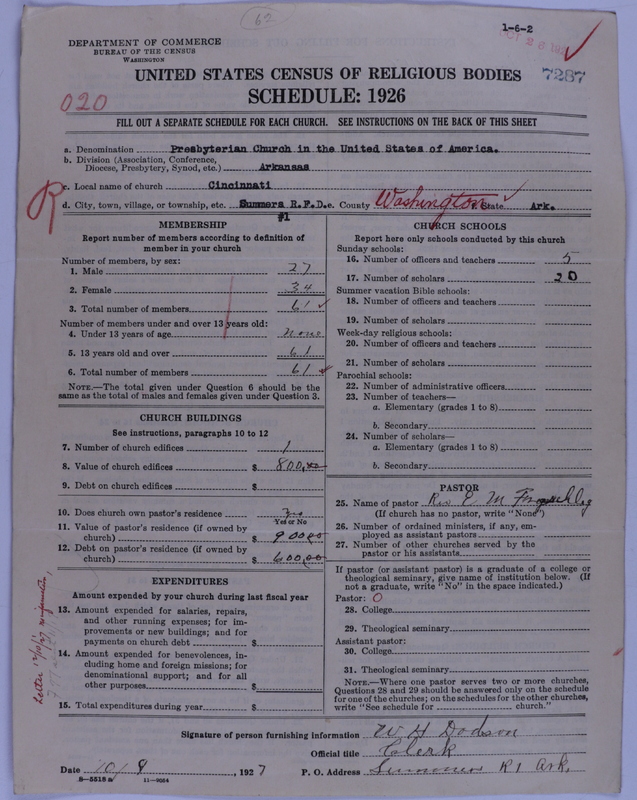 62
1-6-2
DEPARTMENT OF COMMERCE
BUREAU OF THE CENSUS
WASHINGTON
7287
UNITED STATES CENSUS OF RELIGIOUS BODIES
020
SCHEDULE: 1926
FILL OUT A SEPARATE SCHEDULE FOR EACH CHURCH. SEE INSTRUCTIONS ON THE BACK OF THIS SHEET
a. Denomination Presbyterian Church in the United States of America.
b. Division (Association, Conference, Diocese, Presbytery, Synod, etc.) Arkansas
R
c. Local name of church Cincinnati
d. City, town, village, or township, etc. Summers R.F.D. #1 e. County Washington f. State Ark.
MEMBERSHIP
Report number of members according to definition of
member in your church
Number of members, by sex:
1. Male 27
2. Female 34
3. Total number of members 61 ✓
Number of members under and over 13 years old:
4. Under 13 years of age none
5. 13 years old and over 61
6. Total number of members 61 ✓
NOTE.—The total given under Question 6 should be the
same as the total of males and females given under Question 3.
CHURCH BUILDINGS
See instructions, paragraphs 10 to 12
7. Number of church edifices 1
8. Value of church edifices $ 800.00
9. Debt on church edifices $
10. Does church own pastor's residence Yes
Yes or No
11. Value of pastor's residence (if owned by
church) $ 900.00
12. Debt on pastor's residence (if owned by
church) $ 600.00
EXPENDITURES
Amount expended by your church during last fiscal year
13. Amount expended for salaries, repairs,
and other running expenses; for im-
provements or new buildings; and for
payments on church debt $
14. Amount expended for benevolences, in-
cluding home and foreign missions; for
denominational support; and for all
other purposes $
15. Total expenditures during year $
Letter 12/10/27
CHURCH SCHOOLS
Report here only schools conducted by this church
Sunday schools:
16. Number of officers and teachers 5
17. Number of scholars 20
Summer vacation Bible schools:
18. Number of officers and teachers
19. Number of scholars
Week-day religious schools:
20. Number of officers and teachers
21. Number of scholars
Parochial schools:
22. Number of administrative officers
23. Number of teachers—
a. Elementary (grades 1 to 8)
b. Secondary
24. Number of scholars—
a. Elementary (grades 1 to 8)
b. Secondary
PASTOR
25. Name of pastor Rev E M
(If church has no pastor, write "None")
26. Number of ordained ministers, if any, em-
ployed as assistant pastors
27. Number of other churches served by the
pastor or his assistants
If pastor (or assistant pastor) is a graduate of a college or
theological seminary, give name of institution below. (If
not a graduate, write "No" in the space indicated.)
Pastor: 0
28. College
29. Theological seminary
Assistant pastor:
30. College
31. Theological seminary
NOTE.—Where one pastor serves two or more churches,
Questions 28 and 29 should be answered only on the schedule
for one of the churches; on the schedules for the other churches,
write "See schedule for church."
Signature of person furnishing information W H Dodson
Official title Clerk
Date 10/8, 1927 P. O. Address Summers R1 Ark.
8-5518 a 11-9034